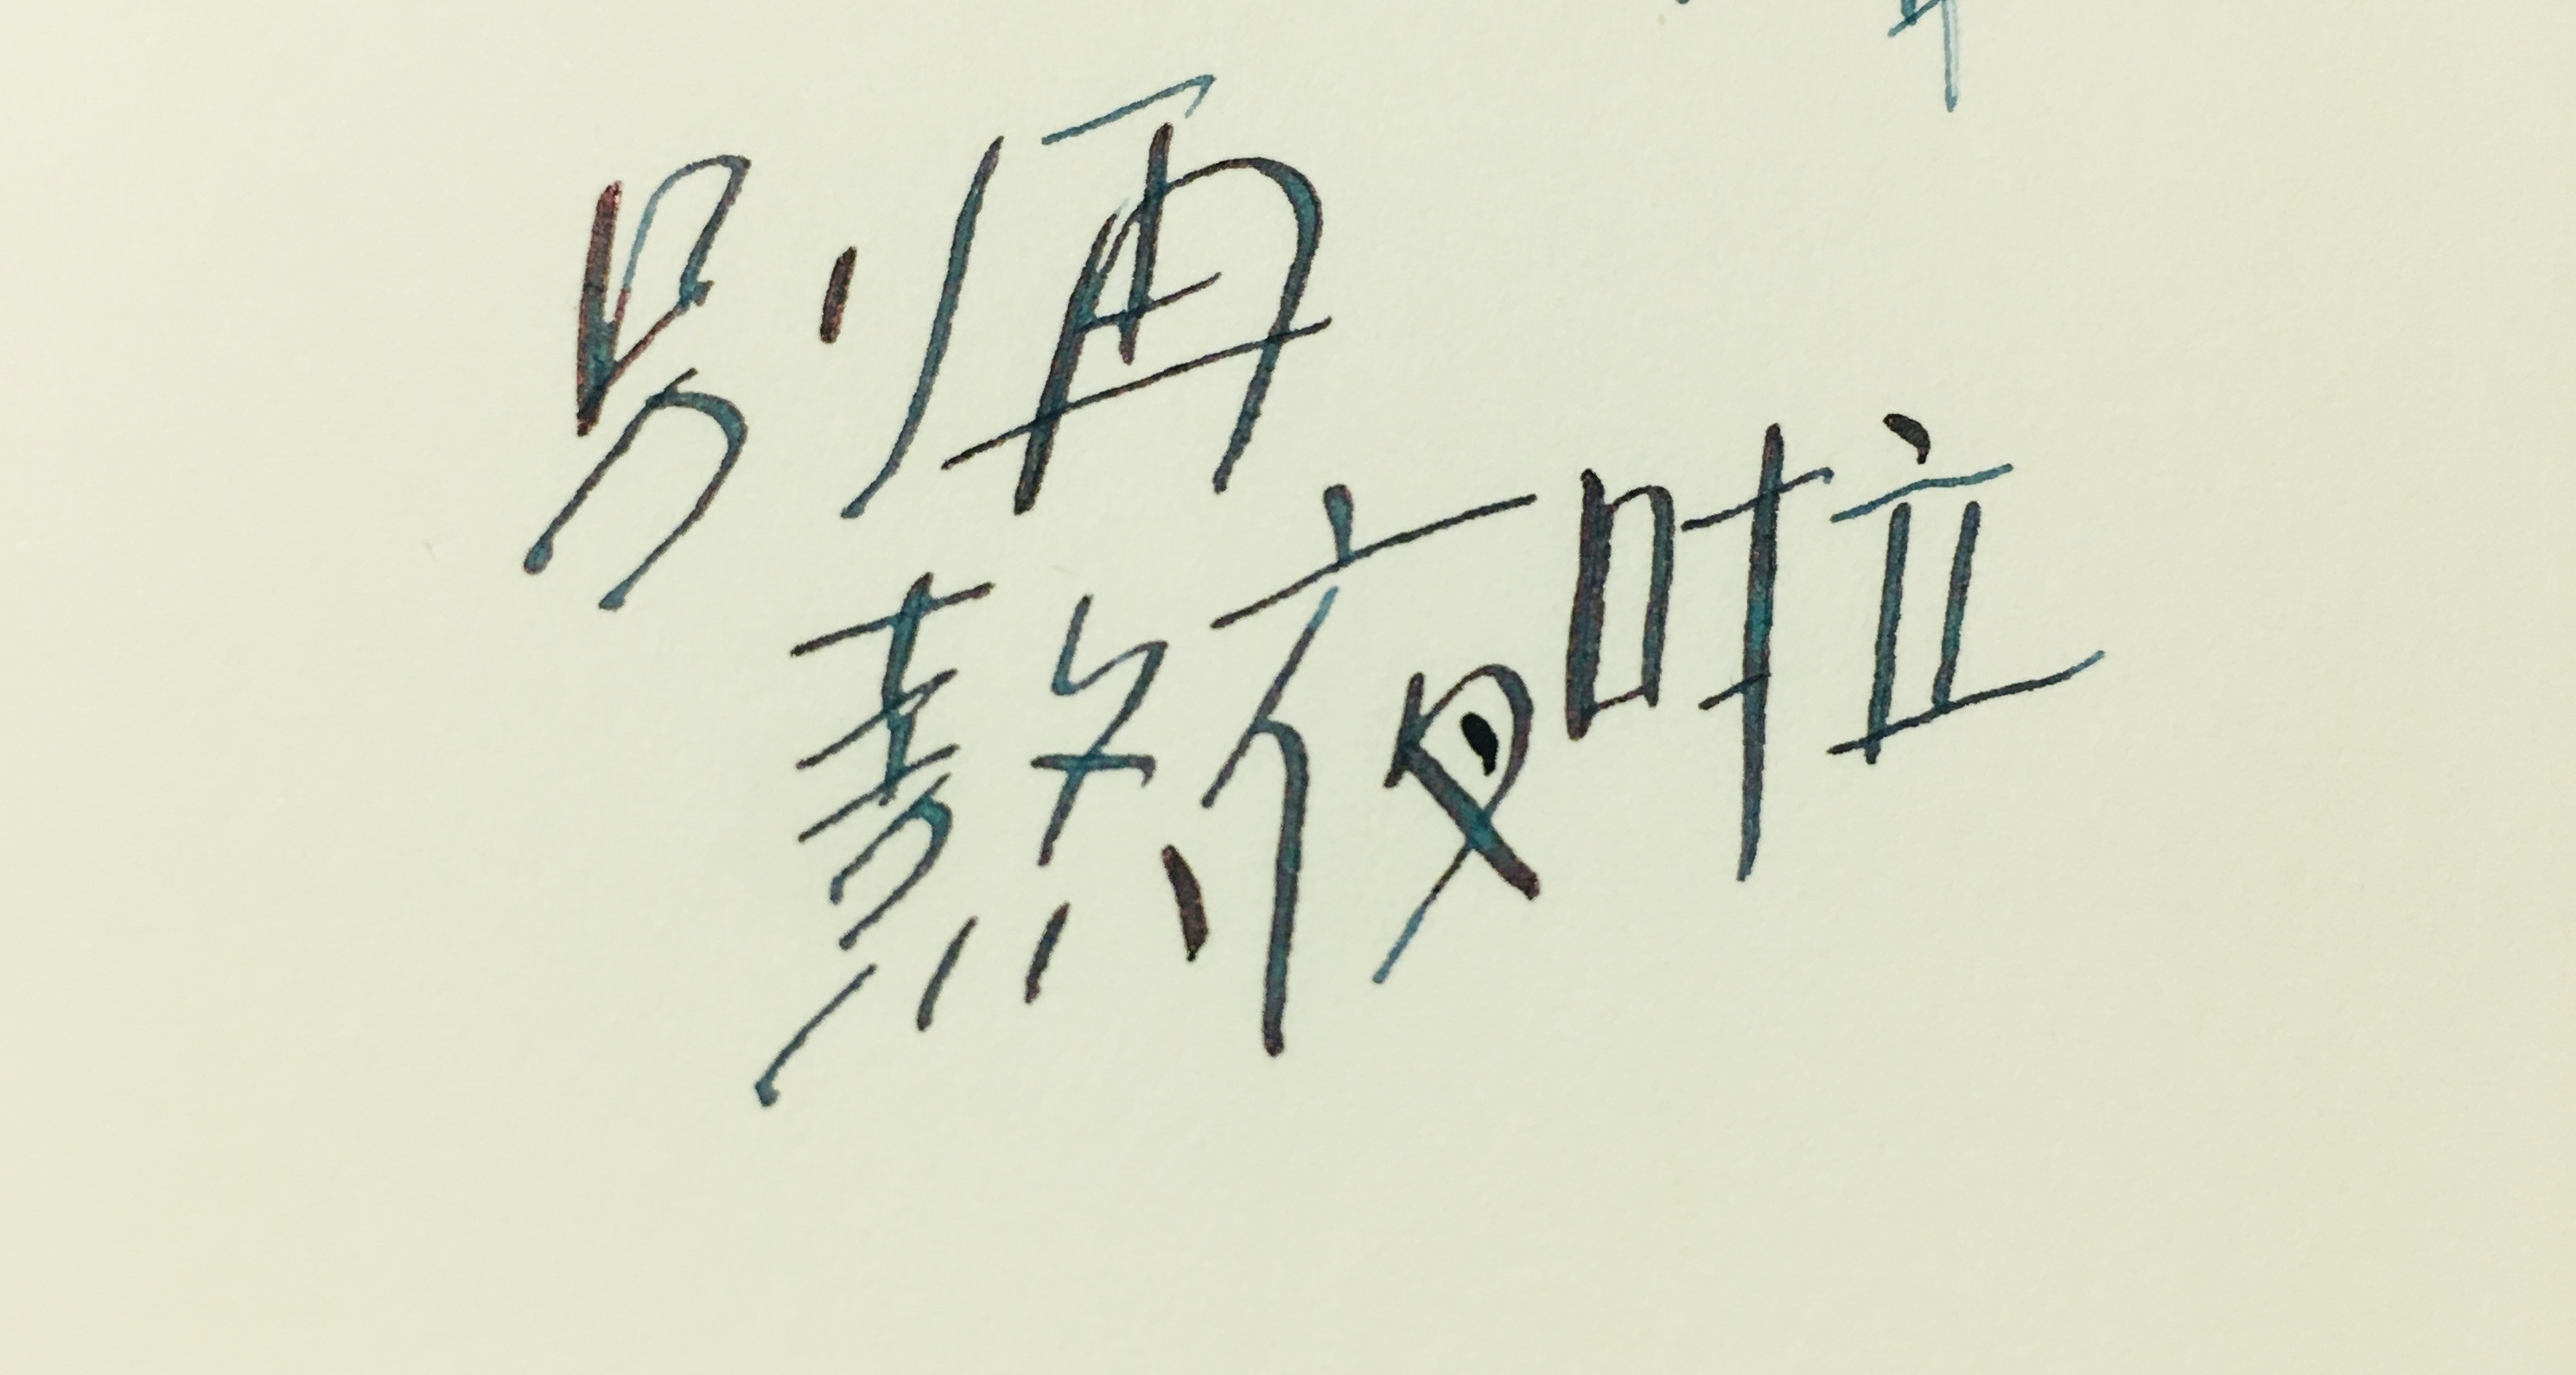 别再
熬夜啦